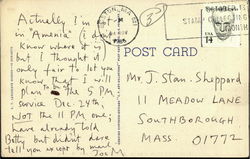 Actually I'm
in "Armenia" (I don't
know where it is)
but I thought it
only fair to let you
know that I will
plan to the 5 PM
service Dec. 24th,
NOT the 11 PM one;
have already told
Betty but didn't dare
tell you except by mail.
OCTOBER IS
STAMP COLLECTING
MONTH
POST CARD
Mr. J. Stan. Sheppard
11 MEADOW LANE
SOUTHBOROUGH
MASS. 01772